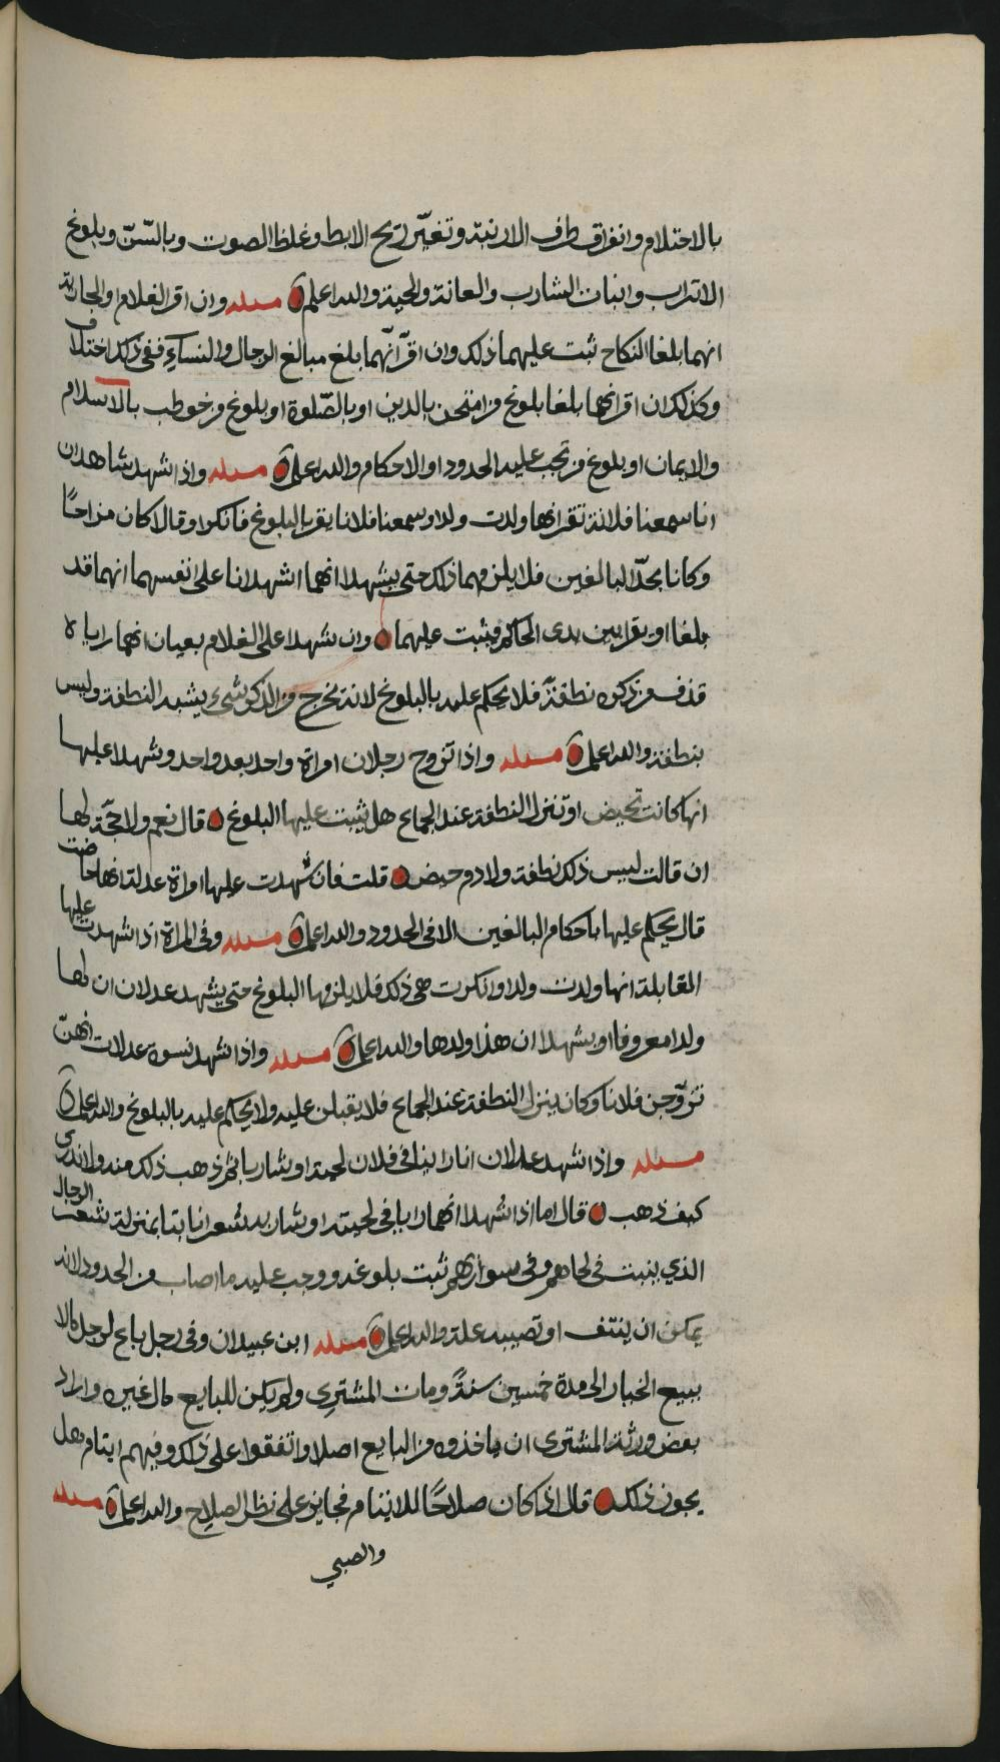 بالاحتلام وانفراق طرف الارنبة وتغيّر ريح الابط وغلظ الصوت وبالسّنّ وبلوغ
الاتراب وانبات الشارب والعانة والحية والله اعلم مسئلة وان اقر الغلام او الجارية
انهما بلغا النكاح ثبت عليهما ذلك وان اقرّ انّهما بلغ مبالغ الرجال والنساء ففي ذلك اختلاف
وكذلك ان اقر انهما بلغا بلوغ من امتحن بالدين او بالصّلوة او بلوغ من خوطب بالاسلام
والايمان او بلوغ من تجب عليه الحدود او الاحكام والله اعلم مسئلة واذا شهد شاهدان
انا سمعنا فلانة تقر انها ولدت ولدا وسمعنا فلانا يقر بالبلوغ فانكرا وقالا كان مزاحًا
وكانا بحدّ البالغين فلا يلزمهما ذلك حتى يشهدا انهما اشهدانا على انفسهما انهما قد
بلغا او يقرا بين يدى الحاكم فيثبت عليهما وان شهدا على الغلام بعيان انهما راياه
قذف من ذكره نطفة فلا يحكم عليه بالبلوغ لانه يخرج من الذكر شيء يشبه النطفة وليس
بنطفة والله اعلم مسئلة واذا تزوج رجلان امراة واحد بعد واحد وشهدا عليها
انها كانت تحيض او تنزل النطفة عند الجماع هل يثبت عليها البلوغ قال نعم ولا حجّة لها
ان قالت ليس ذلك نطفة ولا دم حيض قلت فان شهدت عليها امراة عدلة انها حاضت
قال يحكم عليها باحكام البالغين الا في الحدود والله اعلم مسئلة وفي المراة اذا شهدت عليها
القابلة انها ولدت ولدا وانكرت هي ذلك فلا يلزمها البلوغ حتى يشهد عدلان ان لها
ولدا معروفا او يشهدا ان هذا ولدها والله اعلم مسئلة واذا شهد نسوة عدلات انهنّ
تزوّجن فلانا وكان ينزل النطفة عند الجماع فلا يقبلن عليه ولا يحكم عليه بالبلوغ والله اعلم
مسئلة واذا شهد عدلان انا راينا في فلان لحية او شاربا ثم ذهب ذلك منه ولا ندرى
كيف ذهب قال اما اذا شهدا انهما رايا في لحيته او شاربه شعرا نابتا بمنزلة شعر الرجال
الذي ينبت في لحاهم وفي شواربهم ثبت بلوغه ووجب عليه ما اصاب من الحدود لانه
يمكن ان ينتف او تصيبه علة والله اعلم مسئلة ابن عبيدان وفي رجل باع لرجل مالا
ببيع الخيار الى مدة خمسين سنةً ومات المشترى ولم يكن للبايع مال غيره واراد
بعض ورثة المشترى ان ياخذوه من البايع اصلا واتفقوا على ذلك وفيهم ايتام هل
يجوز ذلك قال اذا كان صلاحًا للايتام فجايز على نظر الصلاح والله اعلم مسئلة
والصبي